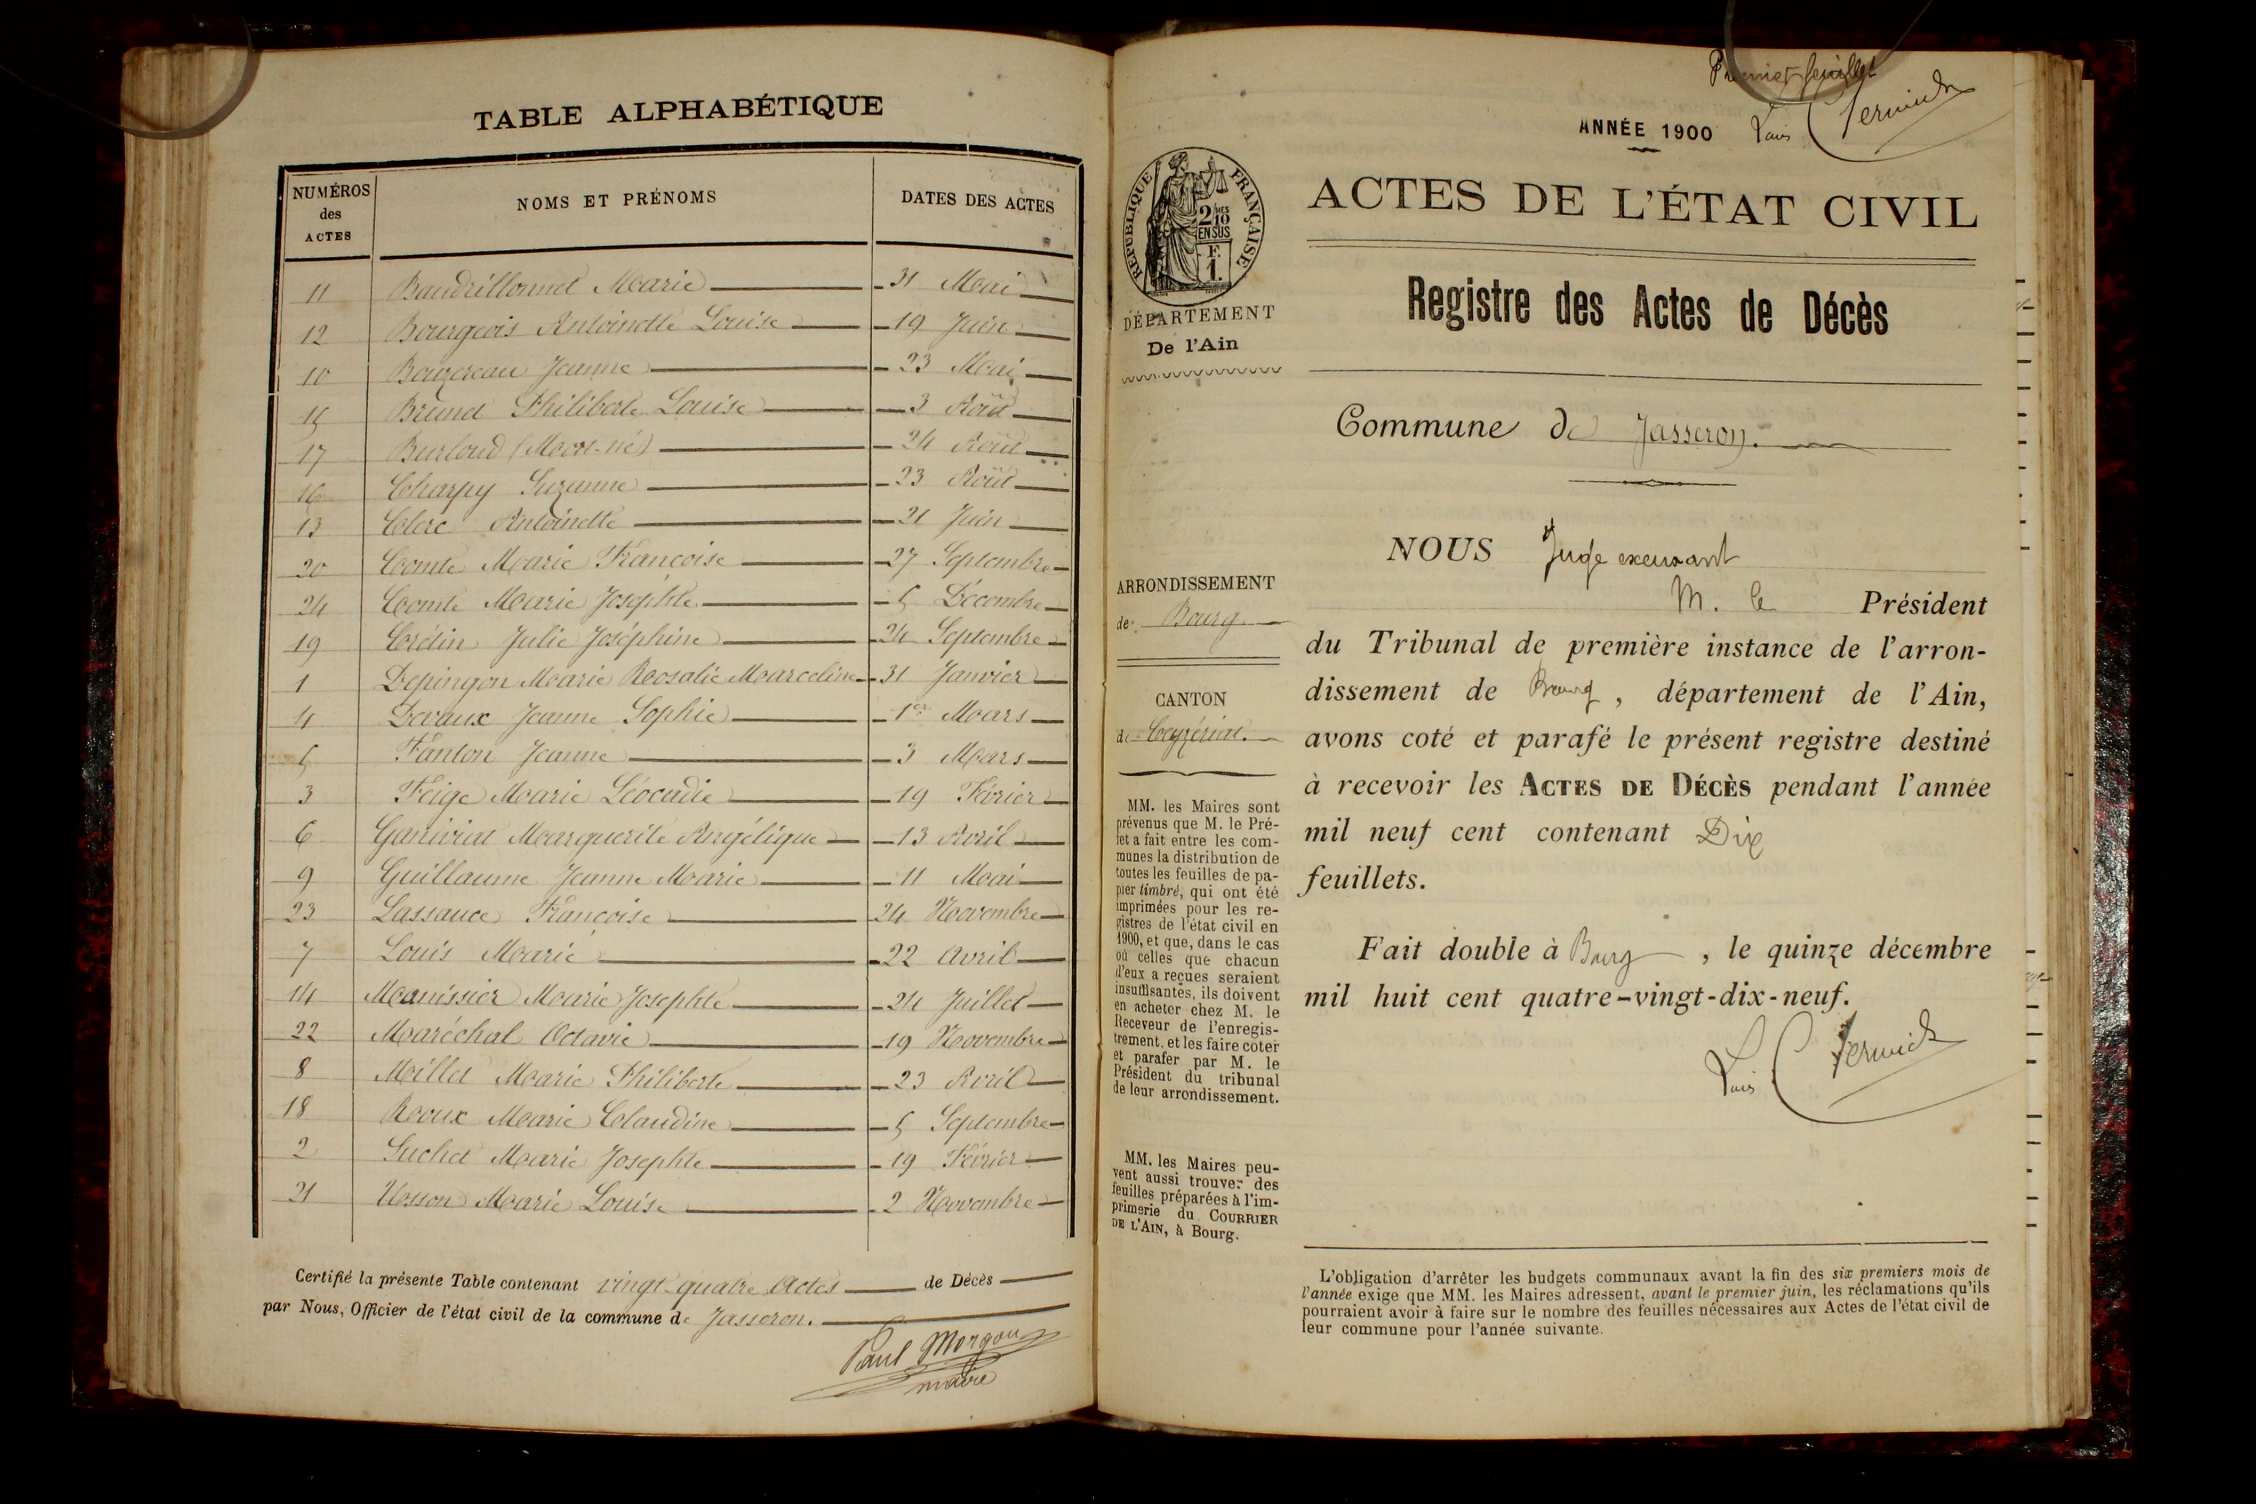 TABLE ALPHABÉTIQUE
NUMÉROS des ACTES NOMS ET PRÉNOMS DATES DES ACTES
11 Baudrillonnet Marie 31 Mai
12 Bourgeois Antoinette Louise 19 Juin
10 Bouzereau Jeanne 23 Mai
15 Brunet Philiberte Louise 3 Août
17 Burloud (Mort-né) 24 Août
16 Charpy Suzanne 23 Août
13 Clerc Antoinette 21 Juin
20 Comte Marie Françoise 27 Septembre
24 Comte Marie Josephte 5 Décembre
19 Crétin Julie Joséphine 24 Septembre
1 Depingon Marie Rosalie Marceline 31 Janvier
4 Devaux Jeanne Sophie 1er Mars
5 Fanton Jeanne 3 Mars
3 Feige Marie Léocadie 19 Février
6 Ganivrat Marguerite Angélique 13 Avril
9 Guillaume Jeanne Marie 11 Mai
23 Lassauce Françoise 24 Novembre
7 Louis Marie 22 Avril
14 Manissier Marie Josephte 24 Juillet
22 Maréchal Octavie 19 Novembre
8 Millet Marie Philiberte 23 Avril
18 Roux Marie Claudine 5 Septembre
2 Suchet Marie Josephte 19 Février
21 Vosson Marie Louise 2 Novembre
Certifié la présente Table contenant vingt-quatre Actes de Décès
par Nous, Officier de l'état civil de la commune de Jasseron.
Paul Morgon
maire
Premier feuillet
ANNÉE 1900
RÉPUBLIQUE FRANÇAISE
2/10MES
EN SUS
F.
1.
DÉPARTEMENT
De l'Ain
ARRONDISSEMENT
de Bourg
CANTON
de Ceyzériat.
MM. les Maires sont
prévenus que M. le Pré-
fet a fait entre les com-
munes la distribution de
toutes les feuilles de pa-
pier timbré, qui ont été
imprimées pour les re-
gistres de l'état civil en
1900, et que, dans le cas
où celles que chacun
d'eux a reçues seraient
insuffisantes, ils doivent
en acheter chez M. le
Receveur de l'enregis-
trement, et les faire coter
et parafer par M. le
Président du tribunal
de leur arrondissement.
MM. les Maires peu-
vent aussi trouver des
feuilles préparées à l'im-
primerie du COURRIER
DE L'AIN, à Bourg.
ACTES DE L'ÉTAT CIVIL
Registre des Actes de Décès
Commune de Jasseron.
NOUS Juge exerçant
M. le Président
du Tribunal de première instance de l'arron-
dissement de Bourg, département de l'Ain,
avons coté et parafé le présent registre destiné
à recevoir les ACTES DE DÉCÈS pendant l'année
mil neuf cent contenant Dix
feuillets.
Fait double à Bourg, le quinze décembre
mil huit cent quatre-vingt-dix-neuf.
L'obligation d'arrêter les budgets communaux avant la fin des six premiers mois de
l'année exige que MM. les Maires adressent, avant le premier juin, les réclamations qu'ils
pourraient avoir à faire sur le nombre des feuilles nécessaires aux Actes de l'état civil de
leur commune pour l'année suivante.